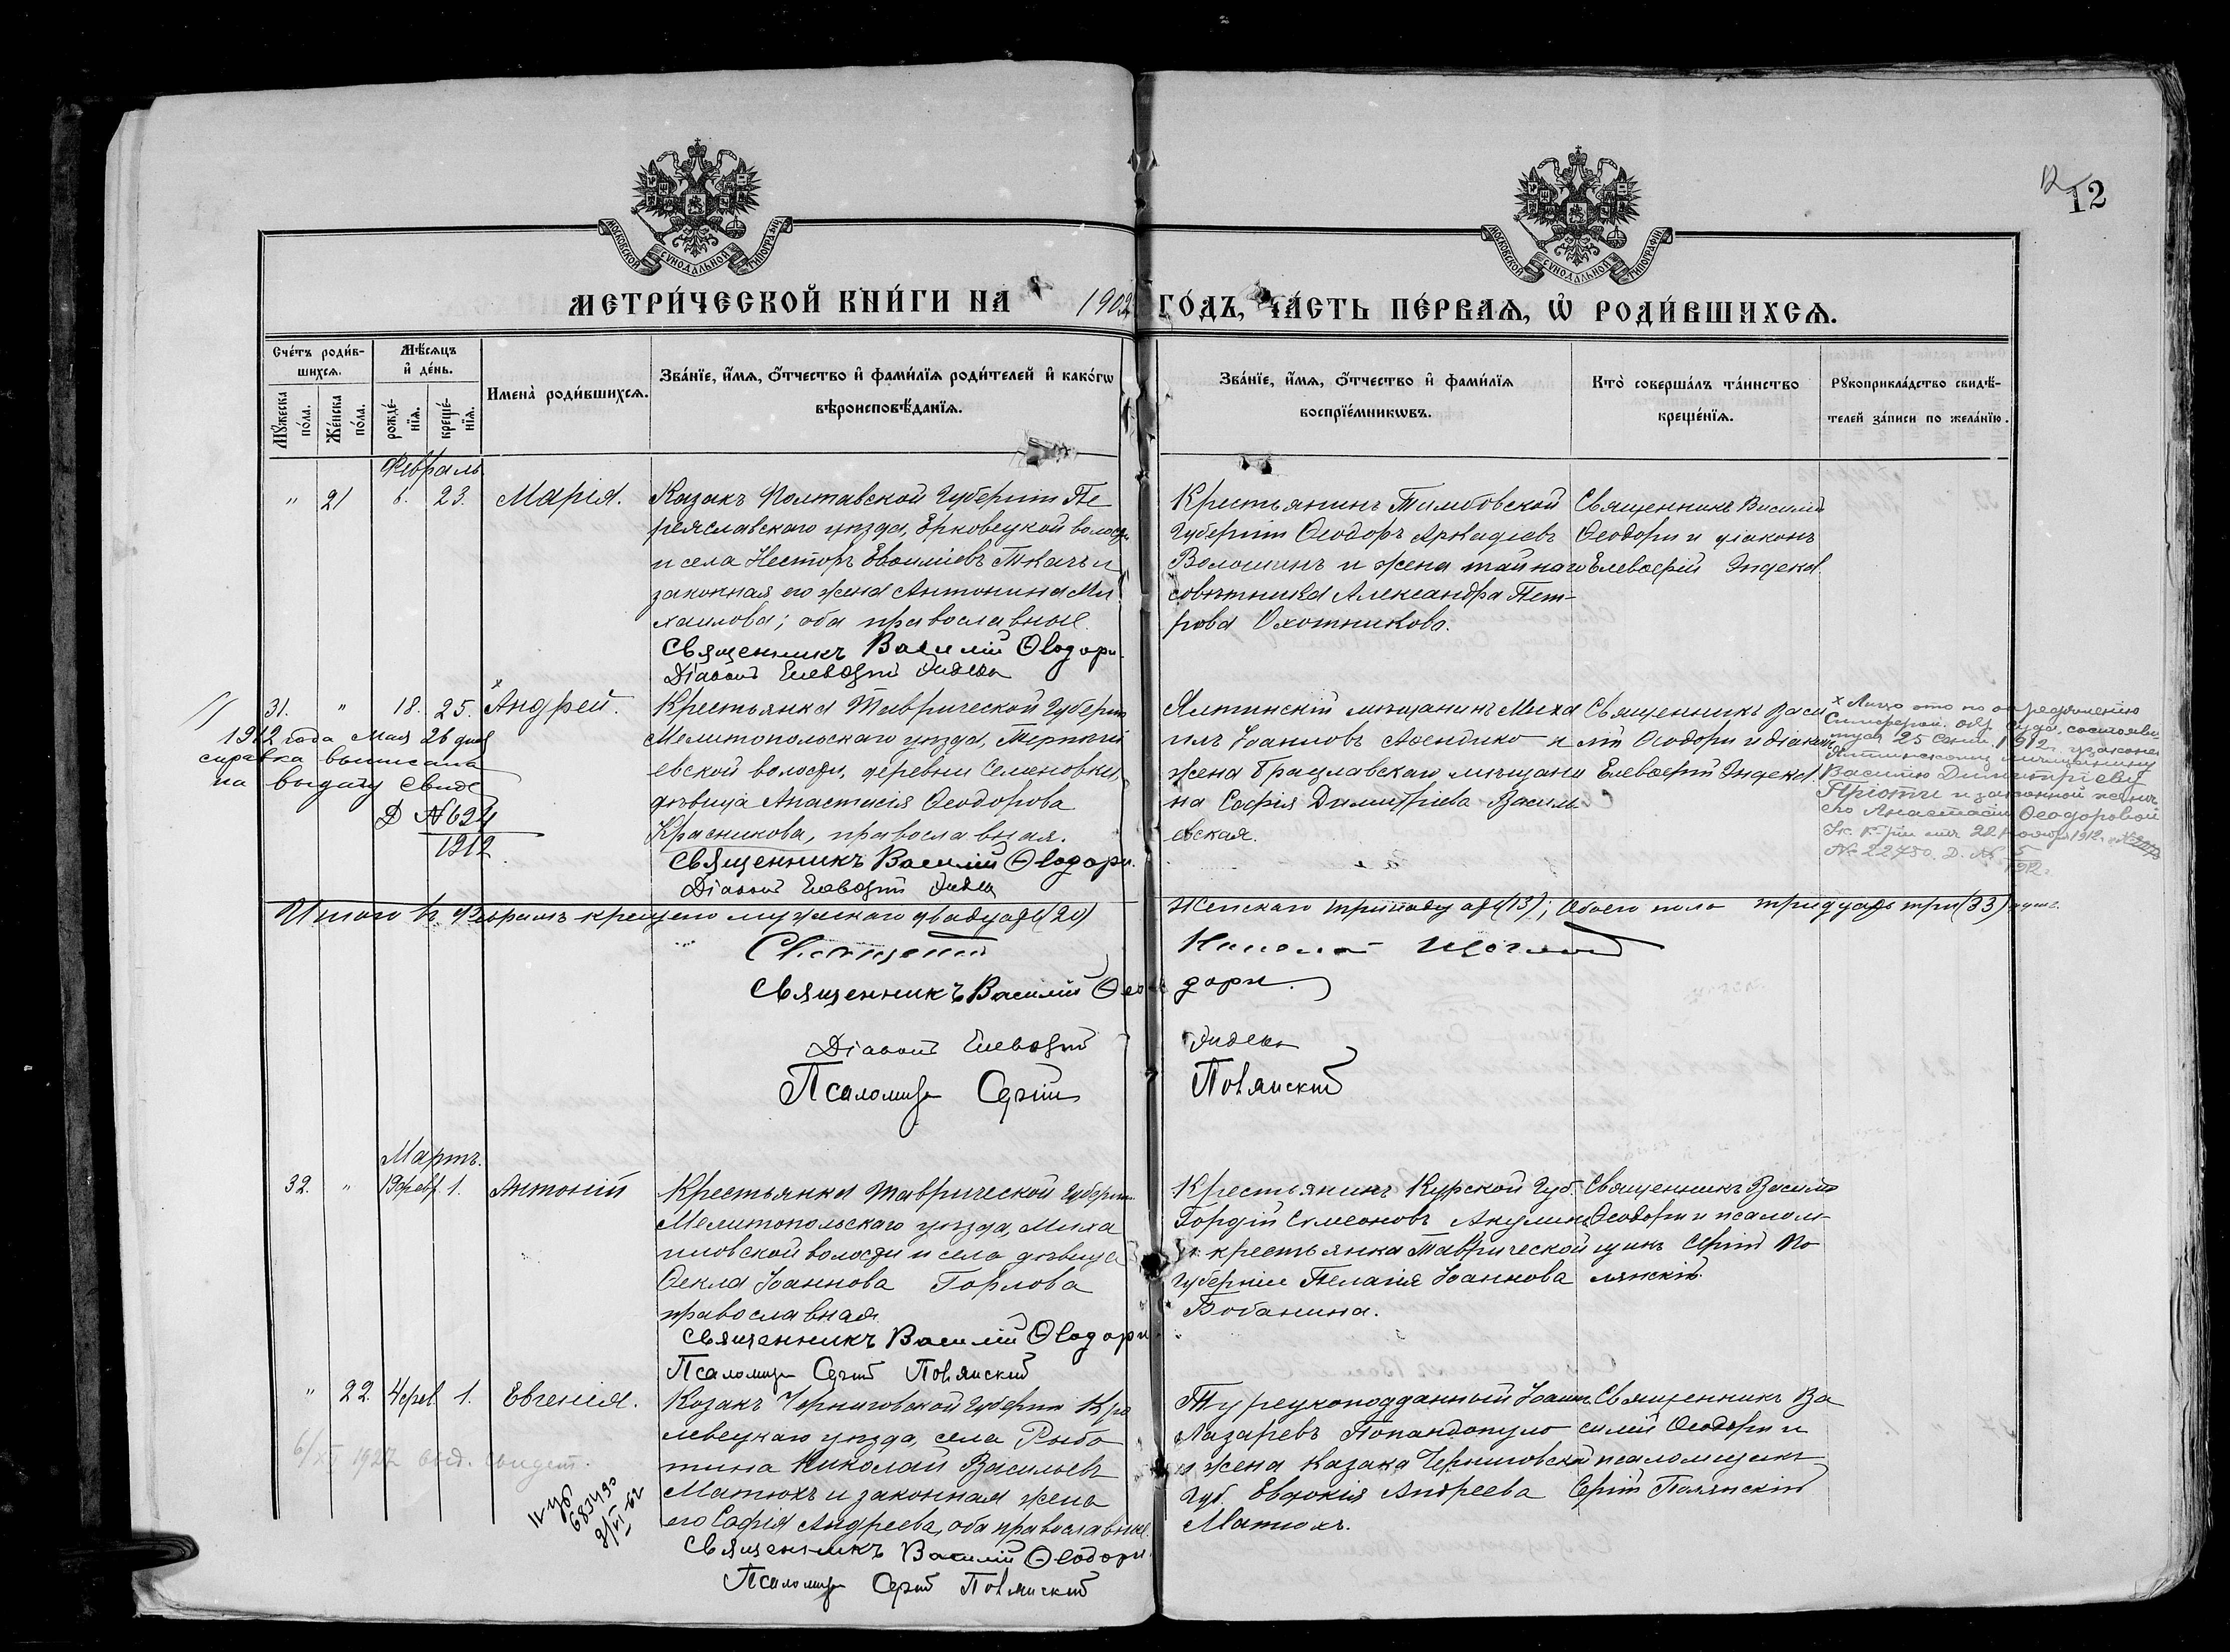 12
12
МОСКОВСКОЙ СУНОДАЛЬНОЙ ТИПОГРАФІИ
МОСКОВСКОЙ СУНОДАЛЬНОЙ ТИПОГРАФІИ
МЕТРИ́ЧЕСКОЙ КНИ́ГИ НА 1902 ГО́ДЪ, ЧА́СТЬ ПЕ́РВАѦ, Ѡ҆ РОДИ́ВШИХСѦ.
Сче́тъ роди́в-
шихсѧ.
Мꙋ́жеска по́ла.
Же́нска по́ла.
Мѣ́сѧцъ
и҆ де́нь.
рожде́-
нїѧ.
креще́-
нїѧ.
Имена̀ роди́вшихсѧ.
Зва́нїе, и҆́мѧ, ѻ҆́тчество и҆ фами́лїѧ роди́телей и҆ како́гѡ
вѣроисповѣ́данїѧ.
Зва́нїе, и҆́мѧ, ѻ҆́тчество и҆ фами́лїѧ
воспрїе́мникѡвъ.
Кто̀ соверша́лъ та́инство
креще́нїѧ.
Рꙋкоприкла́дство свидѣ́-
телей за́писи по жела́нїю.
Февраль
" 21 6. 23. Марія.
Казакъ Полтавской Губерніи Пе
реяславскаго уѣзда, Ерковецкой волости
и села Несторъ Евѳиміевъ Ткачъ и
законная его жена Антонина Ми
хаилова; оба православные
Священникъ Василій Ѳеодори.
Діаконъ Елевѳерій Эндека
Крестьянинъ Тамбовской
Губерніи Ѳеодоръ Аркадіевъ
Волошинъ и жена тайнаго
совѣтника Александра Пет-
рова Охотникова.
Священникъ Василій
Ѳеодори и діаконъ
Елевѳерій Эндека
31. " 18. 25. Андрей.
1912 года Мая 26 дня
справка выписана
на выдачу свид
Д №624
1912
Крестьянка Таврической Губерніи
Мелитопольскаго уѣзда, Терпѣні
евской волости, деревни Семеновки,
дѣвица Анастасія Ѳеодорова
Красникова, православная.
Священникъ Василій Ѳеодори.
Діаконъ Елевѳерій Эндека
Ялтинскій мѣщанинъ Миха
илъ Іоанновъ Аѳендико и
жена Брацлавскаго мѣщани
на Софія Димитріева Василь
евская.
Священникъ Васи
лій Ѳеодори и діаконъ
Елевѳерій Эндека.
х Лицо это по опредѣленію
Симфероп. окр. суда, состоявш
муся 25 Сент. 1912 г. узаконе
Ялтинскому мѣщанину
Василію Димитріеву
и законной женѣ
его Анастасіи Ѳеодоровой
22 ноября 1912 г.
№ 22780. Д. № 5
1912.
Итого въ Февралѣ крещено мужскаго двадцать (20)
Женскаго тринадцать (13); Обоего пола тридцать три (33) души.
Священникъ Николай
Священникъ Василій Ѳеодори.
Діаконъ Елевѳерій Эндека
Псаломщикъ Сергій Полянский
Мартъ.
32. " 19 февр. 1. Антоній
Крестьянка Таврической Губерніи
Мелитопольскаго уѣзда, Миха
иловской волости и села дѣвица
Ѳекла Іоаннова Горлова
православная
Священникъ Василій Ѳеодори
Псаломщикъ Сергій Полянский
Крестьянинъ Курской Губ.
Гордій Симеоновъ Акулин
и крестьянка Таврической
губерніи Пелагія Іоаннова
Бобанина.
Священникъ Василій
Ѳеодори и псалом-
щикъ Сергій По
лянскій.
" 22. 4 фев. 1. Евгенія.
6/XI 1927 выд. свидет.
II-УБ
683490
9/VI-62
Казакъ Черниговской Губерніи Кро
левецкаго уѣзда, села Рыбо
тина Николай Васильевъ
Матюхъ и законная жена
его Софія Андреева, оба православные.
Священникъ Василій Ѳеодори.
Псаломщикъ Сергій Полянский
Турецкоподданный Іоаннъ
Лазаревъ Попандопуло
и жена казака Черниговской
Губ. Евдокія Андреева
Матюхъ.
Священникъ Ва
силій Ѳеодори и
псаломщикъ
Сергій Полянскій